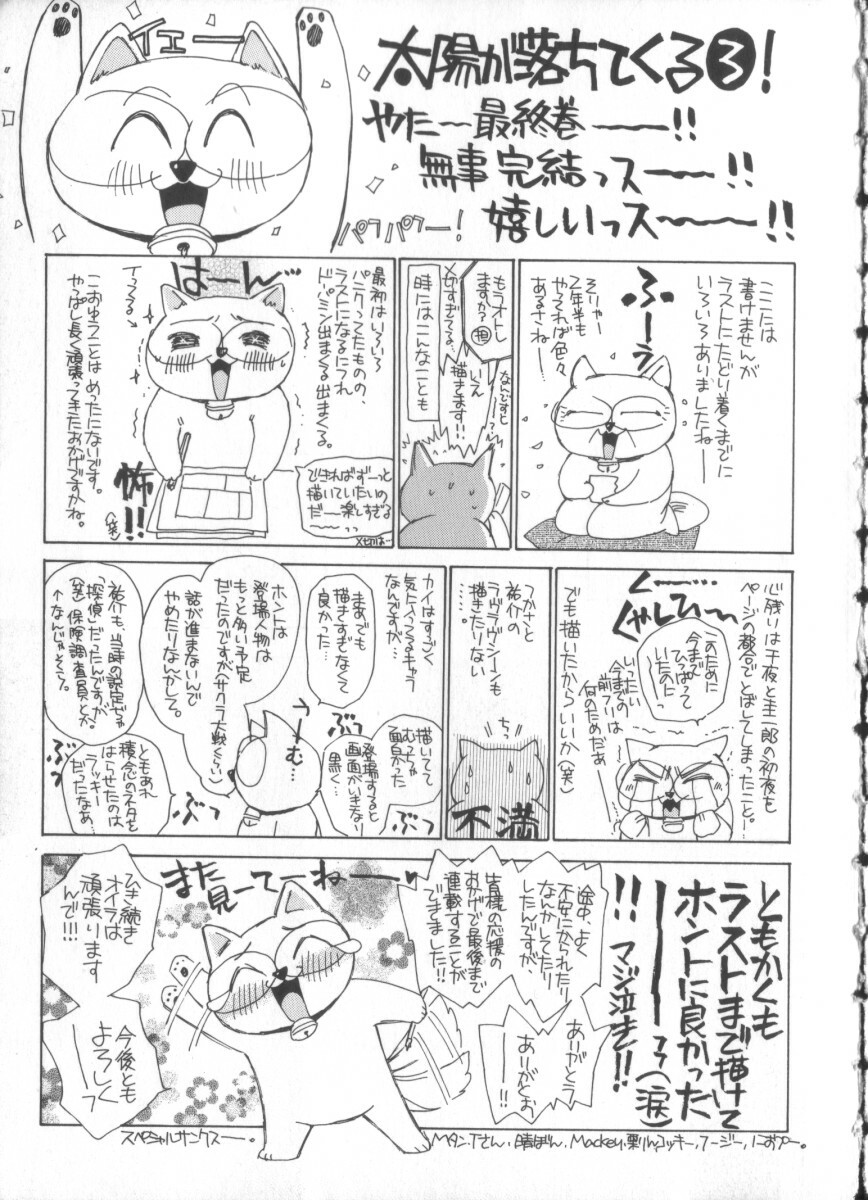 イエー
太陽が落ちてくる③!
やたー最終巻ー!!
無事完結っスー!!
嬉しいっスー!!
パフパフー!
ここには
書けませんが
ラストにたどり着くまでに
いろいろありましたねー
ふーう
そりゃー
2年半も
やってれば色々
あるさねー
もうオトし
ますか?担
〆切すぎてる…
なんですとー
いえ
描きます!!
時にはこんなことも
最初はいろいろ
パニクってたものの、
ラストになるにつれ
ドーパミン出まくる出まくる。
はーん
イってる
できればずーっと
描いていたいの
だー楽しすぎる
ーっっ
〆切はー
怖!!
こおゆうことは めったにないです。
やっぱし長く頑張ってきたおかげですかね。
(笑)
心残りは千夜と圭一郎の初夜も
ページの都合でとばしてしまったこと。
くー…
くやしひー
このために
今まで
ひっぱって
いたのにっ
いったい
今までの
前フリは
何のためだぁー
でも描いたからいいか(笑)
つかさと
祐介の
ラヴラヴシーンも
描きたりない
……。
ちっ
不満
カイはすごく
気に入ってるキャラ
なんですが…
描いてて
むっちゃ
面白かった
登場すると
画面がいきなり
黒く…
まあでも
描きすぎなくて
良かった…
ぶっ
うーむ…
ぶっ
ホントは
登場人物は
もっと多い予定
だったのですが(サクラ大戦くらい)
話が進まないんで
やめたりなんかして。
祐介も、当時の設定じゃ
「探偵」だったんですが
(笑)保険調査員とか。
↑なんじゃそら。
ともあれ
積念のネタを
はらせたのは
ラッキー
だったなぁ…
ぶつ
ぶっ
ともかくも
ラストまで描けて
ホントに良かった
ーっっ(涙)
!!マジ泣き!!
途中、よく
不安になったり
なんかしてたり
したんですが、
皆様の応援の
おかげで最後まで
連載することが
できました!!
ありがとう
ー
ありがとお
ーっ
また
見ーてーねー
ひき続き
オイラは
頑張ります
んで!!!
今後とも
よろしく
ーっ
スペシャルサンクスー。
Mタン、Tさん、晴ぽん、Mackey、栗りん、コッキー、フージー、におプー。